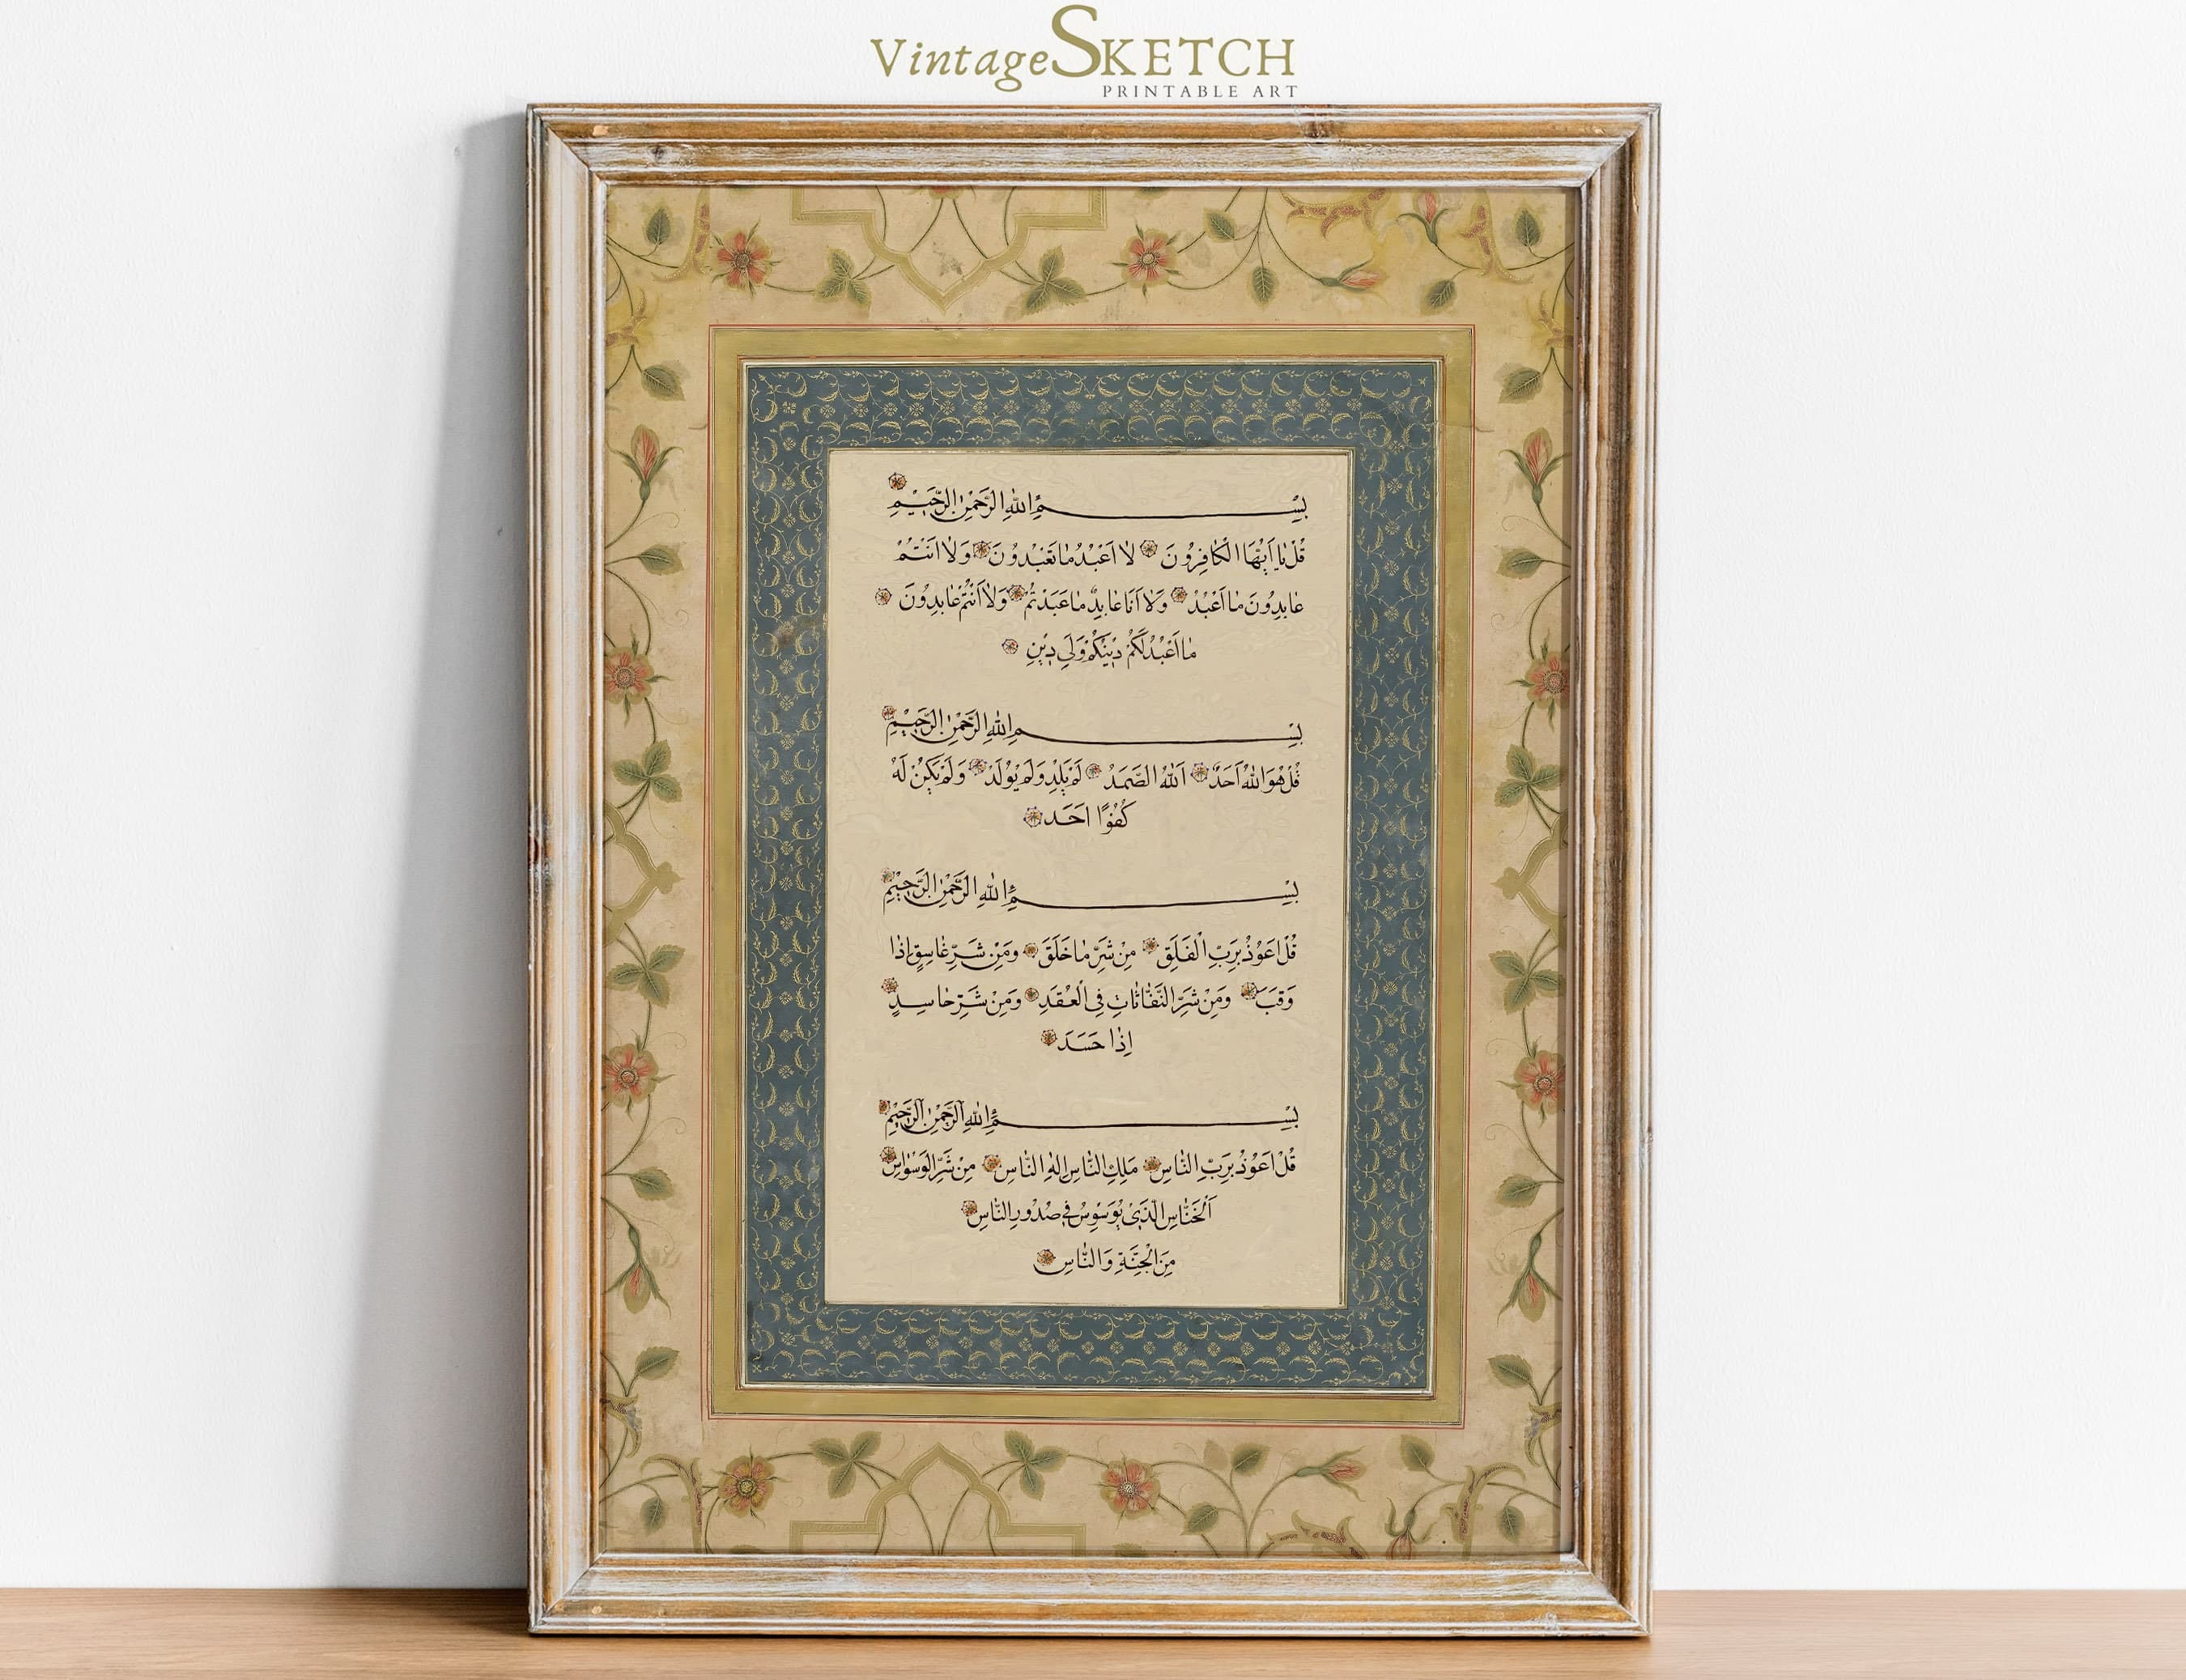 VintageSKETCH
PRINTABLE ART
بِسْمِ اللهِ الرَّحْمٰنِ الرَّحِيمِ
قُلْ يَا أَيُّهَا الْكَافِرُونَ لَا أَعْبُدُ مَا تَعْبُدُونَ وَلَا أَنْتُمْ
عَابِدُونَ مَا أَعْبُدُ وَلَا أَنَا عَابِدٌ مَا عَبَدْتُمْ وَلَا أَنْتُمْ عَابِدُونَ
مَا أَعْبُدُ لَكُمْ دِينُكُمْ وَلِيَ دِينِ
بِسْمِ اللهِ الرَّحْمٰنِ الرَّحِيمِ
قُلْ هُوَ اللهُ أَحَدٌ اَللهُ الصَّمَدُ لَمْ يَلِدْ وَلَمْ يُولَدْ وَلَمْ يَكُنْ لَهُ
كُفُوًا أَحَد
بِسْمِ اللهِ الرَّحْمٰنِ الرَّحِيمِ
قُلْ أَعُوذُ بِرَبِّ الْفَلَقِ مِنْ شَرِّ مَا خَلَقَ وَمِنْ شَرِّ غَاسِقٍ إِذَا
وَقَبَ وَمِنْ شَرِّ النَّفَّاثَاتِ فِي الْعُقَدِ وَمِنْ شَرِّ حَاسِدٍ
إِذَا حَسَدَ
بِسْمِ اللهِ الرَّحْمٰنِ الرَّحِيمِ
قُلْ أَعُوذُ بِرَبِّ النَّاسِ مَلِكِ النَّاسِ إِلٰهِ النَّاسِ مِنْ شَرِّ الْوَسْوَاسِ
اَلْخَنَّاسِ الَّذِي يُوَسْوِسُ فِي صُدُورِ النَّاسِ
مِنَ الْجِنَّةِ وَالنَّاسِ